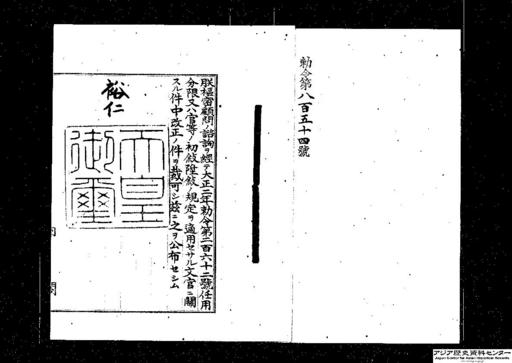 勅令第八百五十四號
朕樞密顧問ノ諮詢ヲ經テ大正二年勅令第二百六十二號任用
分限又ハ官等ノ初敍陞敍ノ規定ヲ適用セサル文官ニ關
スル件中改正ノ件ヲ裁可シ茲ニ之ヲ公布セシム
裕仁
天皇
御璽
内
閣
アジア歴史資料センター
Japan Center for Asian Historical Records